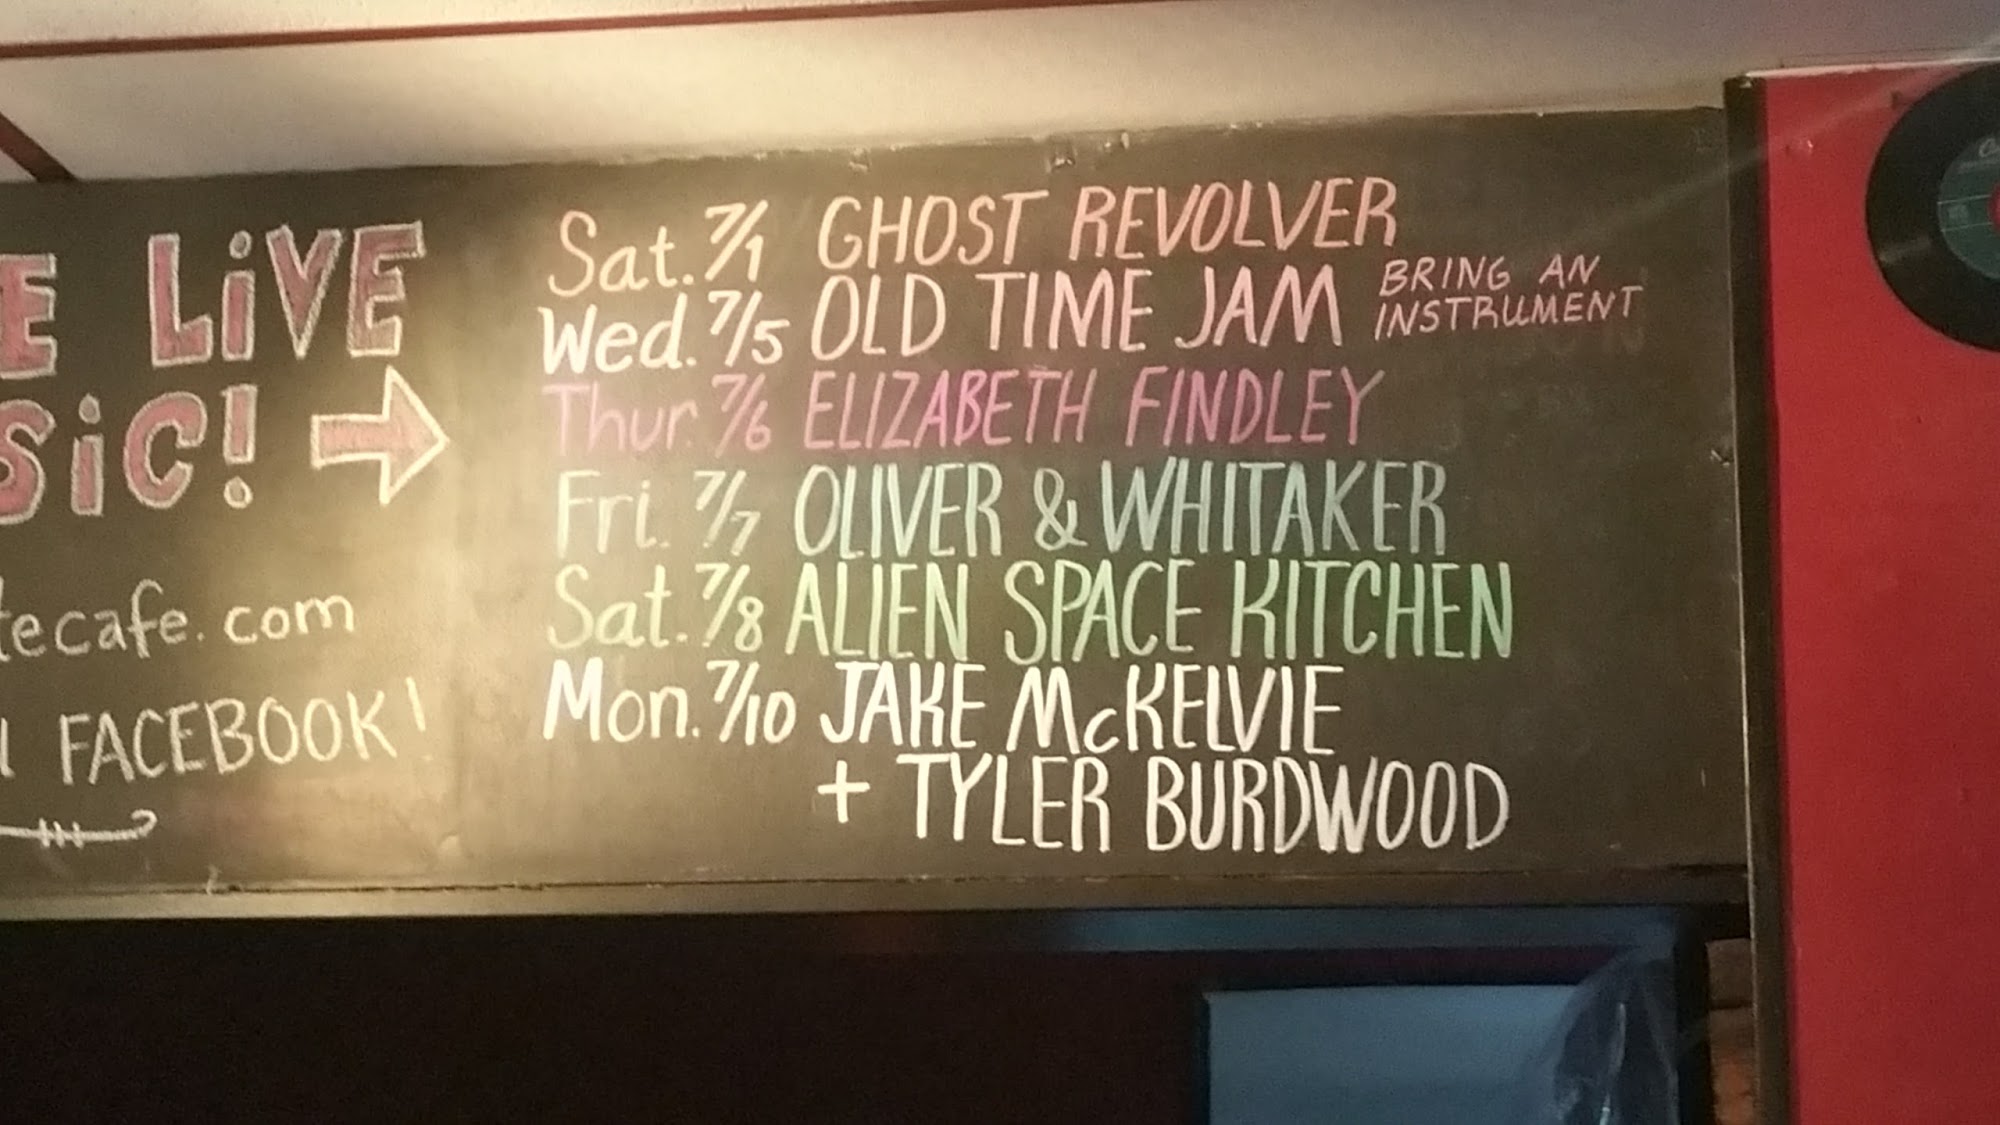 LiVE
Sat. 7/1 GHOST REVOLVER
Wed. 7/5 OLD TIME JAM BRING AN
INSTRUMENT
Thur. 7/6 ELIZABETH FINDLEY
Fri. 7/7 OLIVER & WHITAKER
Sat. 7/8 ALIEN SPACE KITCHEN
Mon. 7/10 JAKE McKELVIE
+ TYLER BURDWOOD
SiC!
tecafe.com
FACEBOOK!